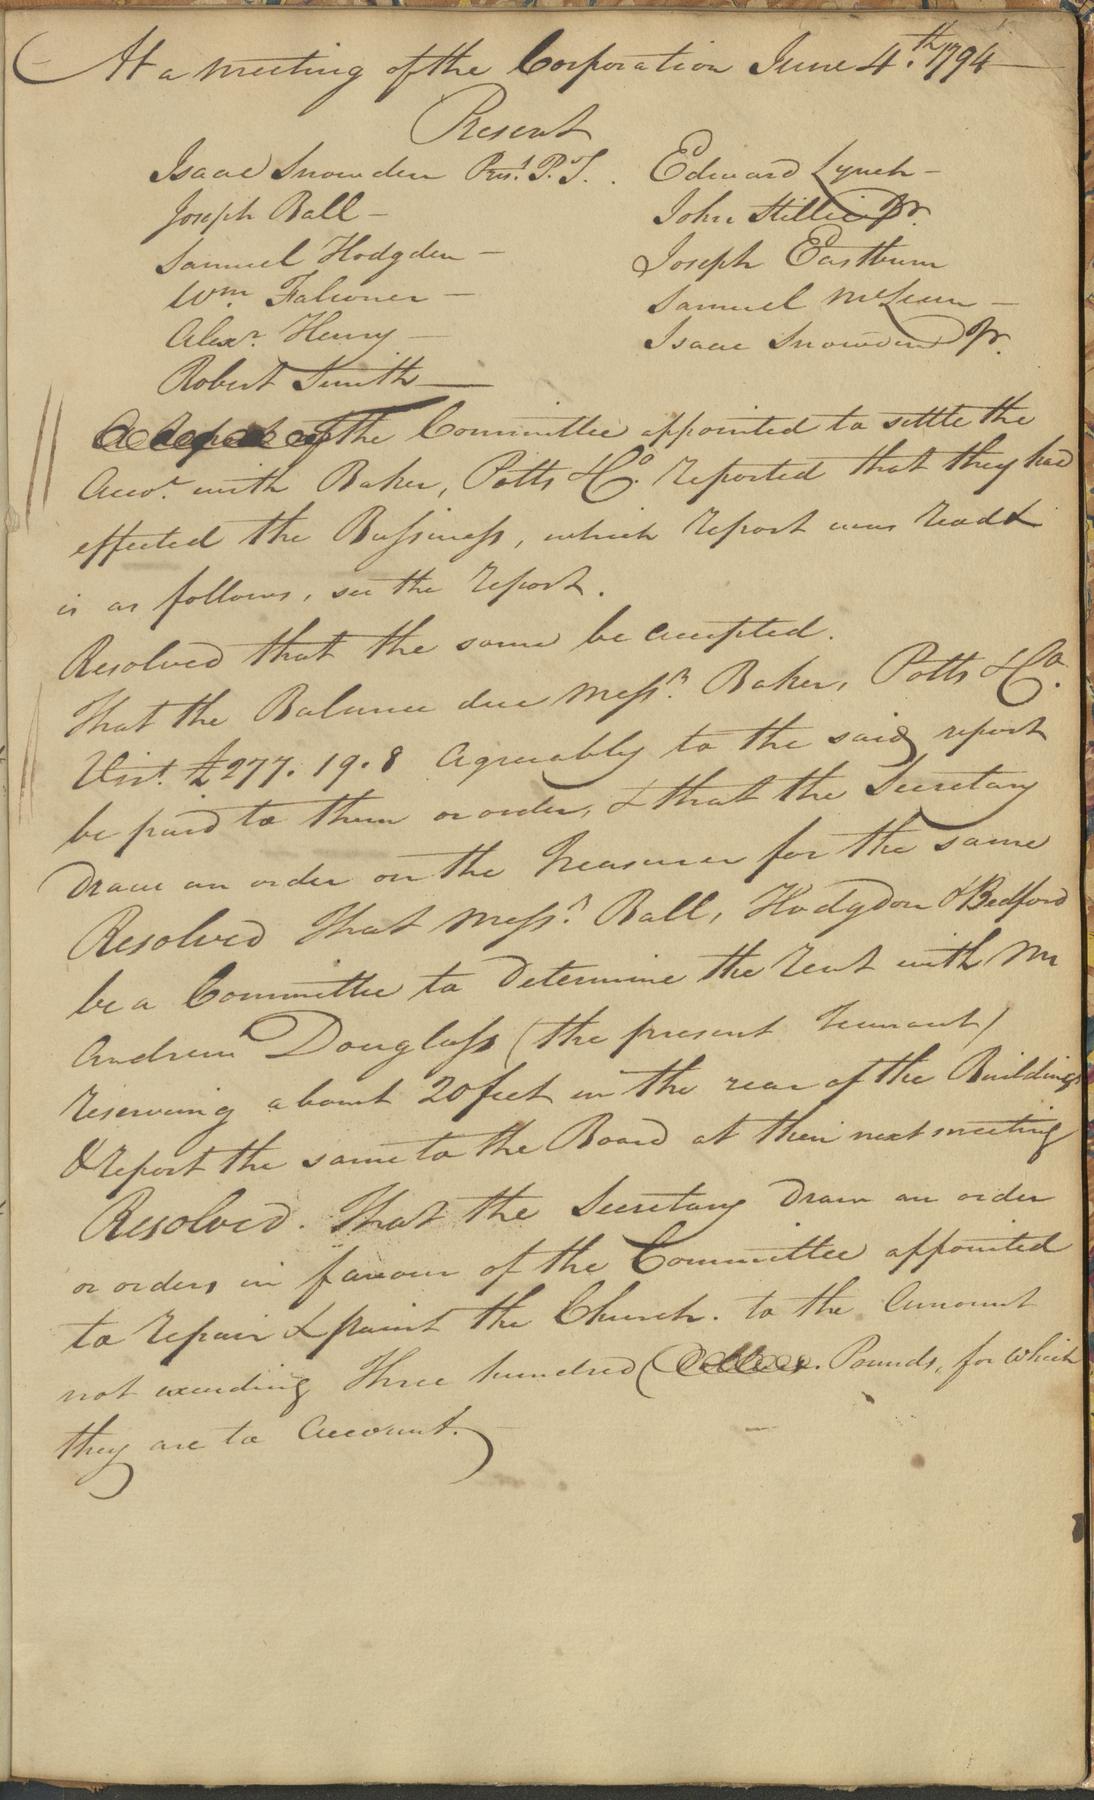 At a meeting of the Corporation June 4th. 1794
Present
Isaac Snowden Prest. P. T.
Joseph Ball
Samuel Hodgden
Wm. Falconer
Alexr. Henry
Robert Smith
Edward Lynch
John Stille Jr.
Joseph Eastburn
Samuel McLean
Isaac Snowden Jr.
the Committee appointed to settle the
Accot. with Baker, Potts & Co. reported that they had
effected the Bussiness, which report was read &
is as follows, see the report.
Resolved that the same be accepted.
That the Balance due Messrs. Baker, Potts & Co.
Vizt. £277. 19. 8 Agreeably to the said report
be paid to them or order, & that the Secretary
Draw an order on the Treasurer for the same
Resolved That Messrs. Ball, Hodgdon & Bedford
be a Committee to Determine the Rent with Mr
Andrew Douglass (the present Tennant)
reserving about 20 feet in the rear of the Buildings
& report the same to the Board at their next meeting
Resolved. That the Secretary Draw an order
or orders in favour of the Committee appointed
to repair & paint the Church. to the Amount
not exceeding Three hundred Pounds, for which
they are to Account.